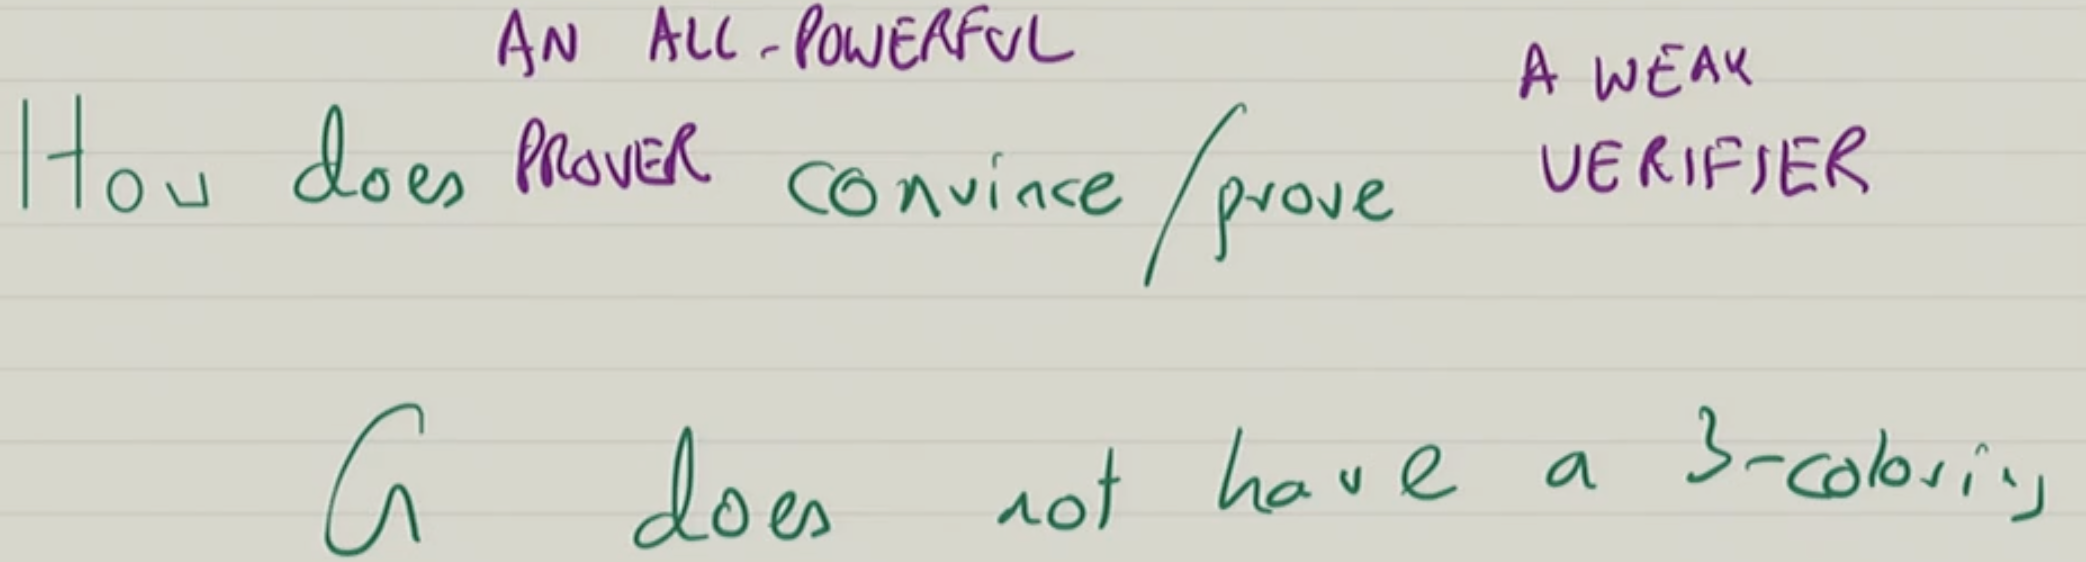 AN ALL-POWERFUL
A WEAK
How does PROVER convince/prove VERIFIER
G does not have a 3-coloring